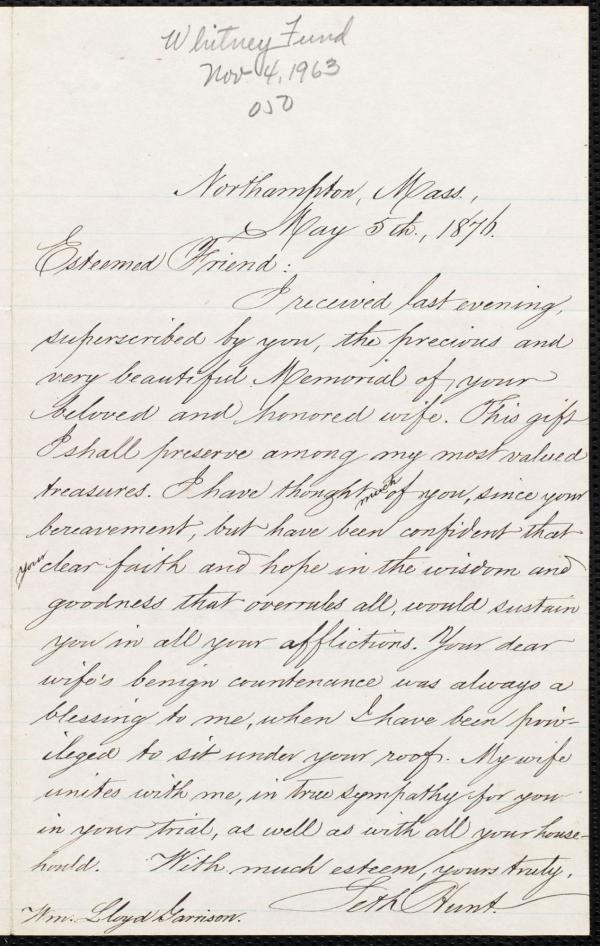 Whitney Fund
Nov 4, 1963
Northampton, Mass.,
May 5th., 1876.
Esteemed Friend:
I received last evening,
superscribed by you, the precious and
very beautiful Memorial of your
beloved and honored wife. This gift
I shall preserve among my most valued
treasures. I have thought much of you, since your
bereavement, but have been confident that
your clear faith and hope in the wisdom and
goodness that overrules all, would sustain
you in all your afflictions. Your dear
wife's benign countenance was always a
blessing to me, when I have been priv-
ileged to sit under your roof. My wife
unites with me, in true sympathy for you
in your trial, as well as with all your house-
hould. With much esteem, yours truly,
Seth Hunt.
Wm. Lloyd Garrison.